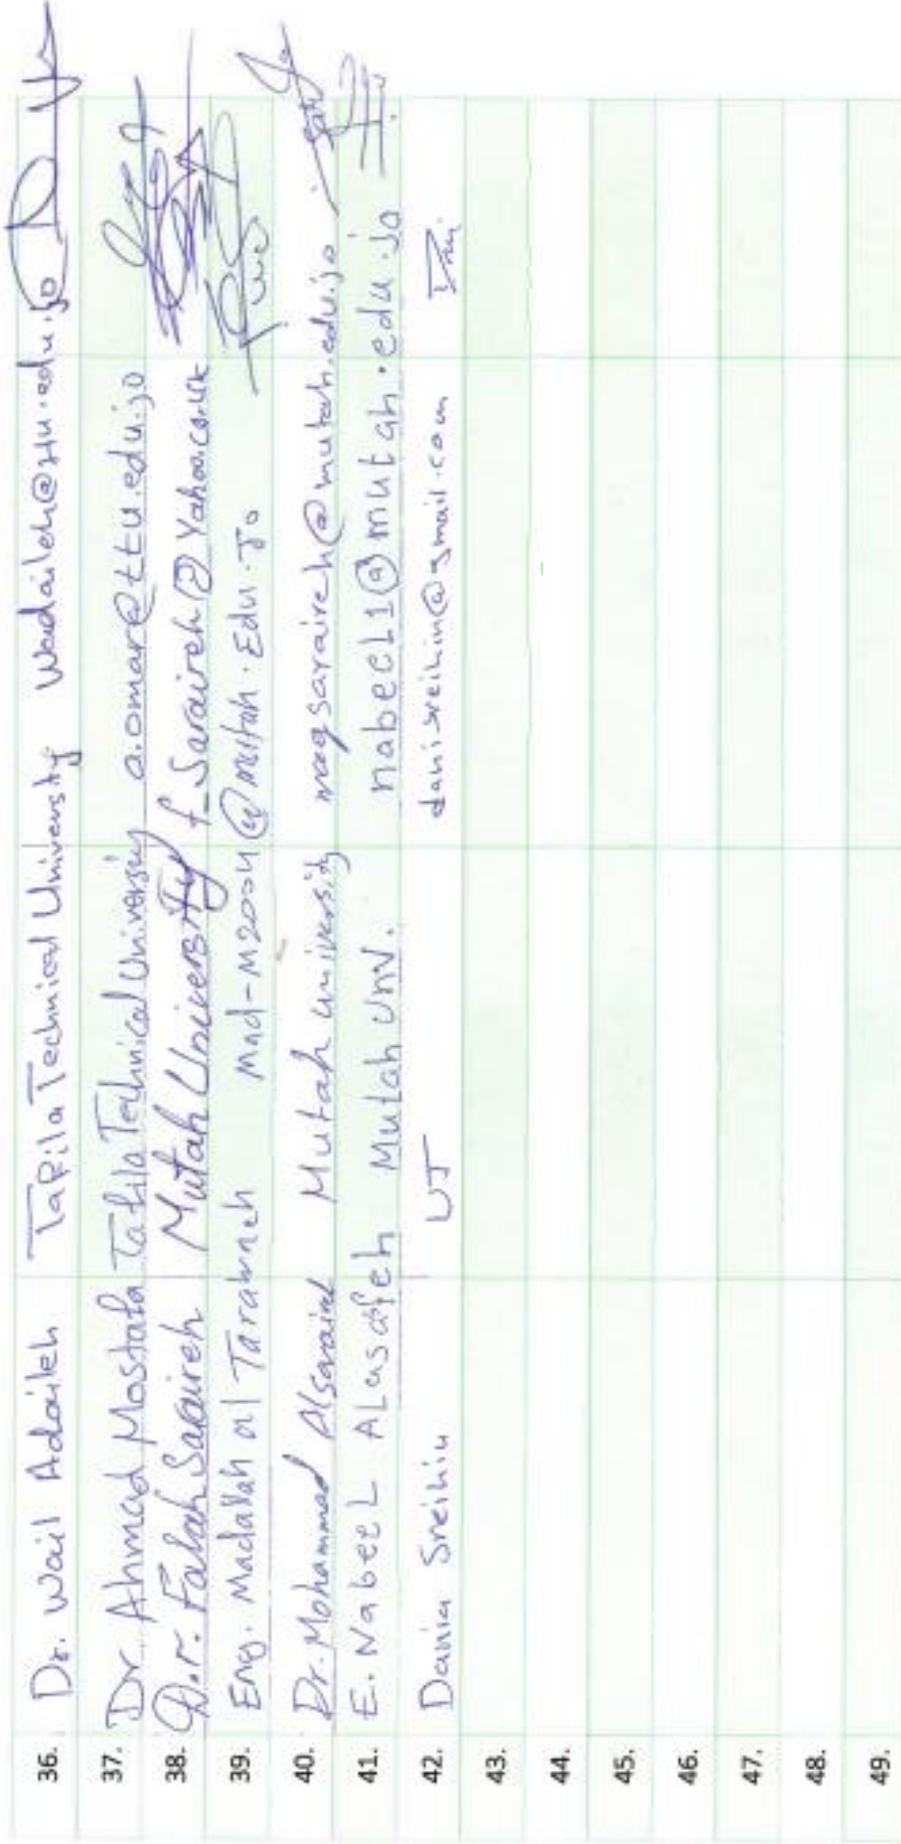 36. Dr. Wail Adaileh Tafila Technical University
37. Dr. Ahmad Mostafa Tafila Technical University a.omar@ttu.edu.jo
38. D.r. Falah Saraireh Mutah University f_Saraireh@Yahoo.co.uk
39. Eng. Madallah al Tarawneh Mad-M2004@mutah.Edu.Jo
40. Dr. Mohammad Mutah university
41. E. NabeeL ALasafeh Mutah Unv. nabeel1@mutah.edu.jo
42. Dania Sreihin UJ danisreihin@gmail.com
43.
44.
45.
46.
47.
48.
49.